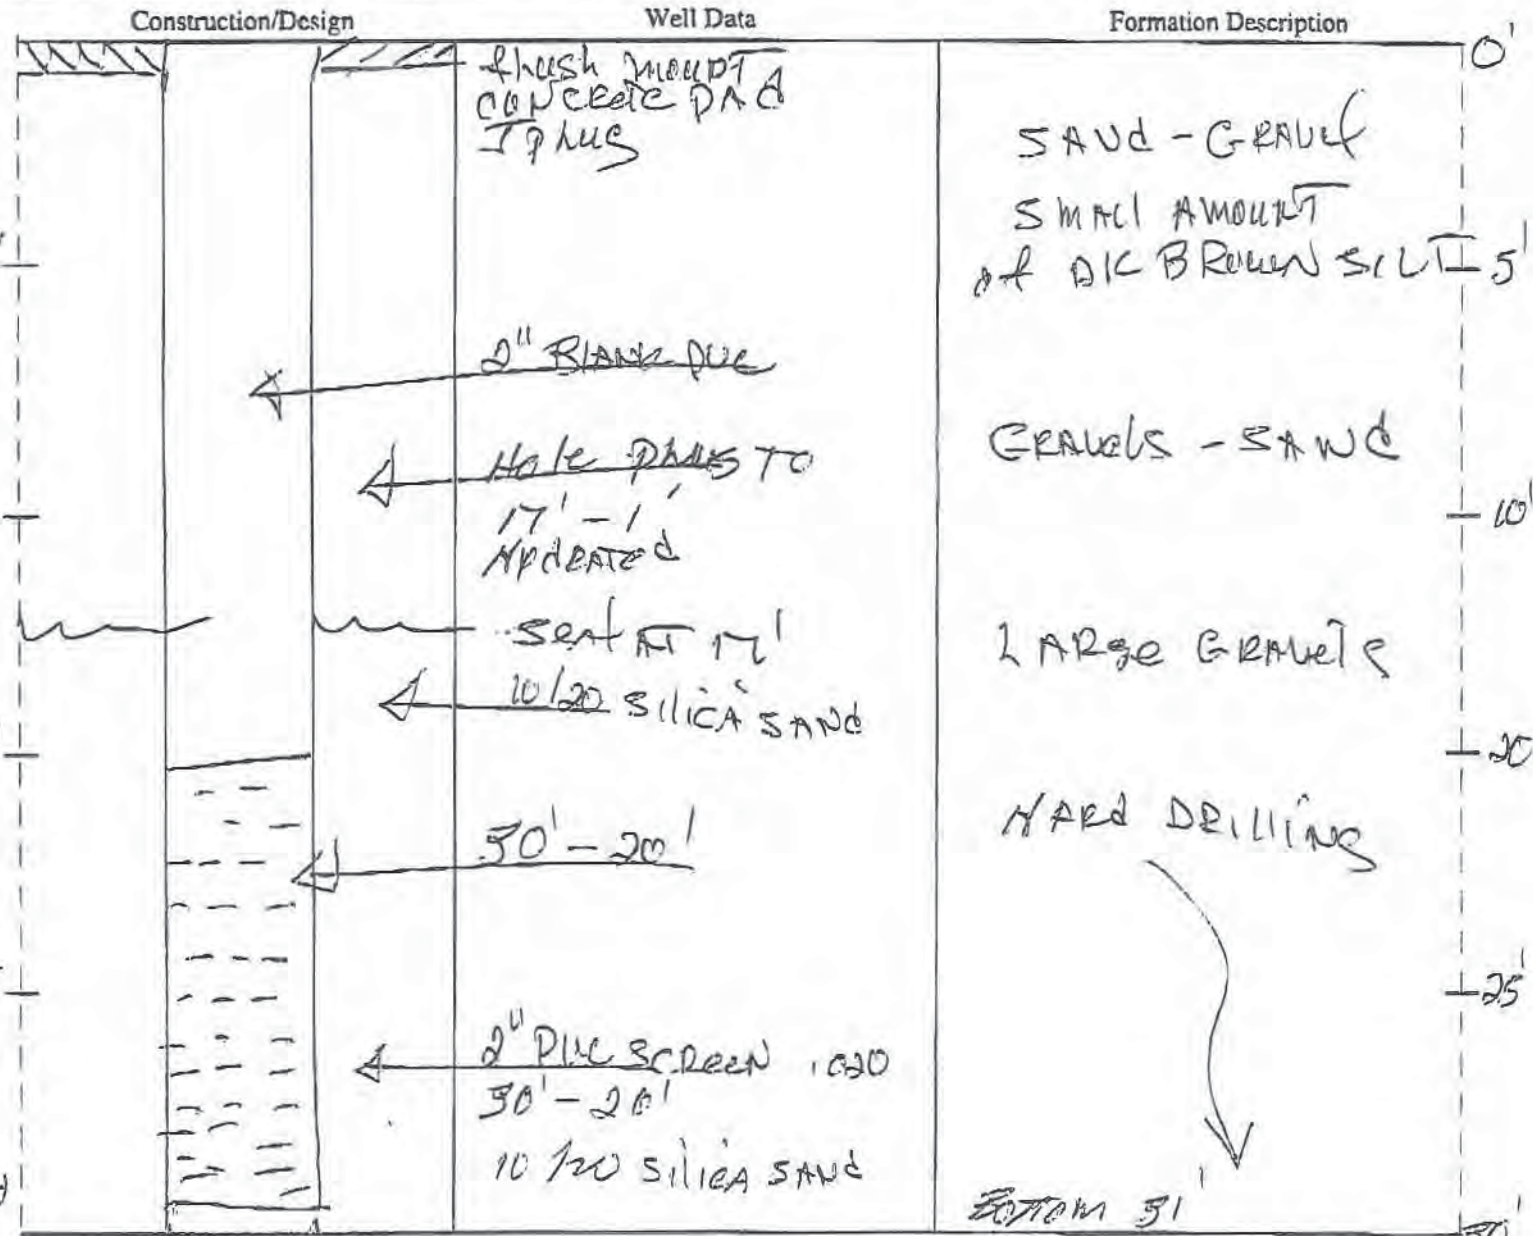 Construction/Design
Well Data
Formation Description
flush mount
CONCRETE PAd
J Plug
2" BLANK PVC
Hole Plug TO
17' - 1'
HYdRATEd
Seal AT 17'
10/20 Silica SANd
30' - 20'
2" PVC SCREEN .020
30' - 20'
10/20 Silica SANd
SANd - GRAVel
SMAll AMOUNT
of DK BROWN SILT
GRAVels - SANd
LARge GRAVels
HARd DRilliNg
BOTTOM 31'
0'
5'
10'
20
25'
30'